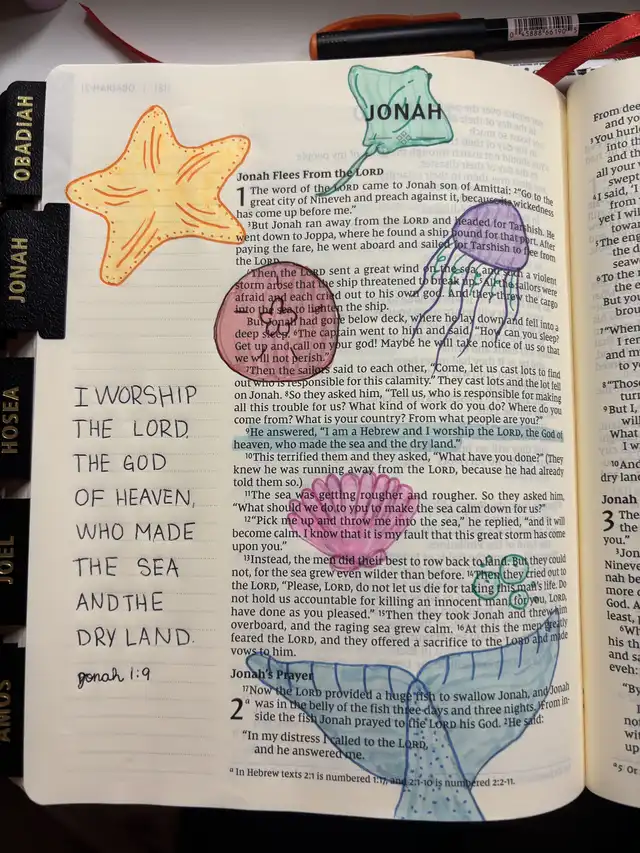 OBADIAH
JONAH
HOSEA
JOEL
AMOS
JONAH
Jonah Flees From the LORD
1 The word of the LORD came to Jonah son of Amittai: 2 "Go to the
great city of Nineveh and preach against it, because its wickedness
has come up before me."
3 But Jonah ran away from the LORD and headed for Tarshish. He
went down to Joppa, where he found a ship bound for that port. After
paying the fare, he went aboard and sailed for Tarshish to flee from
the LORD.
4 Then the LORD sent a great wind on the sea, and such a violent
storm arose that the ship threatened to break up. 5 All the sailors were
afraid and each cried out to his own god. And they threw the cargo
into the sea to lighten the ship.
But Jonah had gone below deck, where he lay down and fell into a
deep sleep. 6 The captain went to him and said, "How can you sleep?
Get up and call on your god! Maybe he will take notice of us so that
we will not perish."
7 Then the sailors said to each other, "Come, let us cast lots to find
out who is responsible for this calamity." They cast lots and the lot fell
on Jonah. 8 So they asked him, "Tell us, who is responsible for making
all this trouble for us? What kind of work do you do? Where do you
come from? What is your country? From what people are you?"
9 He answered, "I am a Hebrew and I worship the LORD, the God of
heaven, who made the sea and the dry land."
10 This terrified them and they asked, "What have you done?" (They
knew he was running away from the LORD, because he had already
told them so.)
11 The sea was getting rougher and rougher. So they asked him,
"What should we do to you to make the sea calm down for us?"
12 "Pick me up and throw me into the sea," he replied, "and it will
become calm. I know that it is my fault that this great storm has come
upon you."
13 Instead, the men did their best to row back to land. But they could
not, for the sea grew even wilder than before. 14 Then they cried out to
the LORD, "Please, LORD, do not let us die for taking this man's life. Do
not hold us accountable for killing an innocent man, for you, LORD,
have done as you pleased." 15 Then they took Jonah and threw him
overboard, and the raging sea grew calm. 16 At this the men greatly
feared the LORD, and they offered a sacrifice to the LORD and made
vows to him.
Jonah's Prayer
17 Now the LORD provided a huge fish to swallow Jonah, and Jonah
2 a was in the belly of the fish three days and three nights. 1 From in-
side the fish Jonah prayed to the LORD his God. 2 He said:
"In my distress I called to the LORD,
and he answered me.
a In Hebrew texts 2:1 is numbered 1:17, and 2:1-10 is numbered 2:2-11.
I WORSHIP
THE LORD.
THE GOD
OF HEAVEN,
WHO MADE
THE SEA
AND THE
DRY LAND.
Jonah 1:9
From dee
and yo
3 You hurl
into th
and th
all your
swept
4 I said, "I
from
yet I w
towar
5 The eng
the d
seawe
6 To the r
the e
But you
brou
7 "When
I rem
and m
to
8 "Those
turn
9 But I,
will
What
I w
10 And
dry land
Jonah
3 The
"The
you."
3 Jon
Nineve
nah be
more d
God. A
least, p
6 Wh
his th
and sa
"By